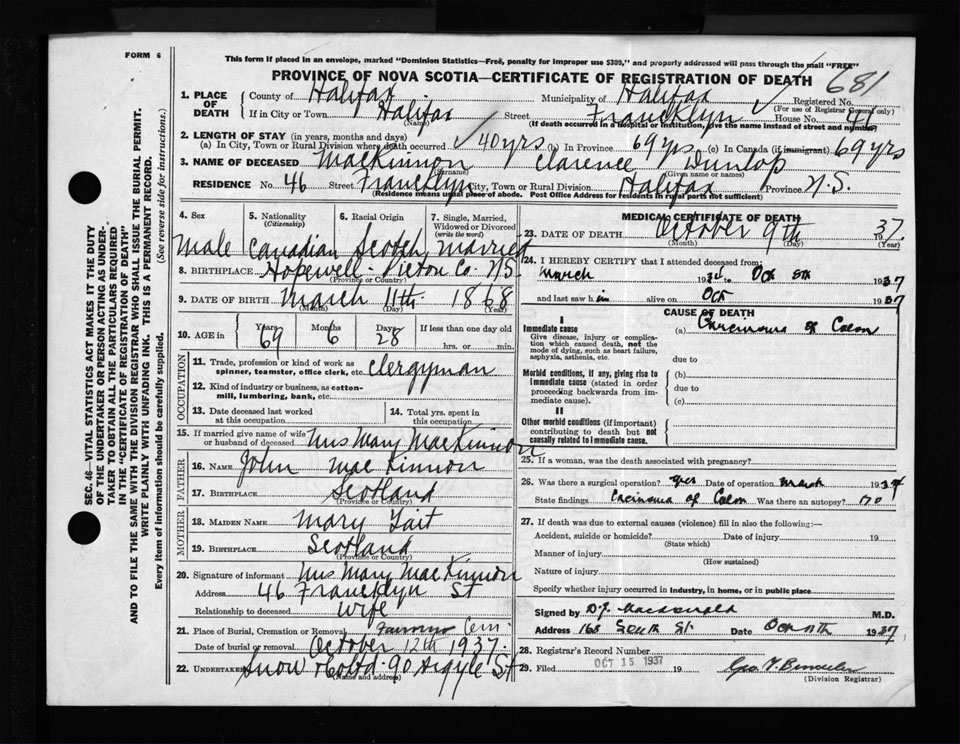 FORM 6
This form if placed in an envelope, marked "Dominion Statistics—Free, penalty for improper use $300," and properly addressed will pass through the mail "FREE"
PROVINCE OF NOVA SCOTIA—CERTIFICATE OF REGISTRATION OF DEATH
681
1. PLACE OF DEATH County of Halifax Municipality of Halifax Registered No.
(For use of Registrar General only)
If in City or Town Halifax Street Francklyn House No. 41
(Name) (If death occurred in a hospital or institution, give the name instead of street and number)
2. LENGTH OF STAY (in years, months and days)
(a) In City, Town or Rural Division where death occurred 40 yrs (b) In Province 69 yrs (c) In Canada (if immigrant) 69 yrs
3. NAME OF DECEASED MacKinnon Clarence Dunlop
(Surname) (Given name or names)
RESIDENCE No. 46 Street Francklyn City, Town or Rural Division Halifax Province N.S.
(Residence means usual place of abode. Post Office Address for Residents in rural parts not sufficient)
4. Sex 5. Nationality (Citizenship) 6. Racial Origin 7. Single, Married, Widowed or Divorced (write the word)
Male Canadian Scotch Married
8. BIRTHPLACE Hopewell - Pictou Co. N.S.
(Province or Country)
9. DATE OF BIRTH March 11th 1868
(Month) (Day) (Year)
10. AGE in Years 69 Months 6 Days 28 If less than one day old hrs. or min.
OCCUPATION
11. Trade, profession or kind of work as spinner, teamster, office clerk, etc. Clergyman
12. Kind of industry or business, as cotton-mill, lumbering, bank, etc.
13. Date deceased last worked at this occupation 14. Total yrs. spent in this occupation
15. If married give name of wife or husband of deceased Mrs Mary MacKinnon
FATHER
16. NAME John MacKinnon
17. BIRTHPLACE Scotland
(Province or Country)
MOTHER
18. MAIDEN NAME Mary Tait
19. BIRTHPLACE Scotland
(Province or Country)
20. Signature of informant Mrs Mary MacKinnon
Address 46 Francklyn St
Relationship to deceased Wife
21. Place of Burial, Cremation or Removal Cem.
Date of burial or removal October 12th 1937
22. UNDERTAKER Snow & Co Ltd. 90 Argyle St
(Name and address)
MEDICAL CERTIFICATE OF DEATH
23. DATE OF DEATH October 9th 1937.
(Month) (Day) (Year)
24. I HEREBY CERTIFY that I attended deceased from:
March 1934 to Oct 8th 1937
and last saw him alive on Oct 1937
CAUSE OF DEATH
I
Immediate cause (a) Carcinoma of Colon
Give disease, injury or complication which caused death, not the mode of dying, such as heart failure, asphyxia, asthenia, etc.
due to
Morbid conditions, if any, giving rise to immediate cause (stated in order proceeding backwards from immediate cause). (b)
due to
(c)
II
Other morbid conditions (if important) contributing to death but not causally related to immediate cause.
25. If a woman, was the death associated with pregnancy?
26. Was there a surgical operation? Yes Date of operation March 1934
State findings Carcinoma of Colon Was there an autopsy? no
27. If death was due to external causes (violence) fill in also the following:—
Accident, suicide or homicide? Date of injury 19
(State which)
Manner of injury
(How sustained)
Nature of injury
Specify whether injury occurred in industry, in home, or in public place
Signed by D.J. MacDonald M.D.
Address 165 South St Date Oct 11th 1937
28. Registrar's Record Number
29. Filed OCT 15 1937 19
(Division Registrar)
SEC. 46—VITAL STATISTICS ACT MAKES IT THE DUTY OF THE UNDERTAKER OR PERSON ACTING AS UNDERTAKER TO OBTAIN ALL THE PARTICULARS REQUIRED IN THE "CERTIFICATE OF REGISTRATION OF DEATH" AND TO FILE THE SAME WITH THE DIVISION REGISTRAR WHO SHALL ISSUE THE BURIAL PERMIT.
WRITE PLAINLY WITH UNFADING INK. THIS IS A PERMANENT RECORD.
Every item of information should be carefully supplied. (See reverse side for instructions.)